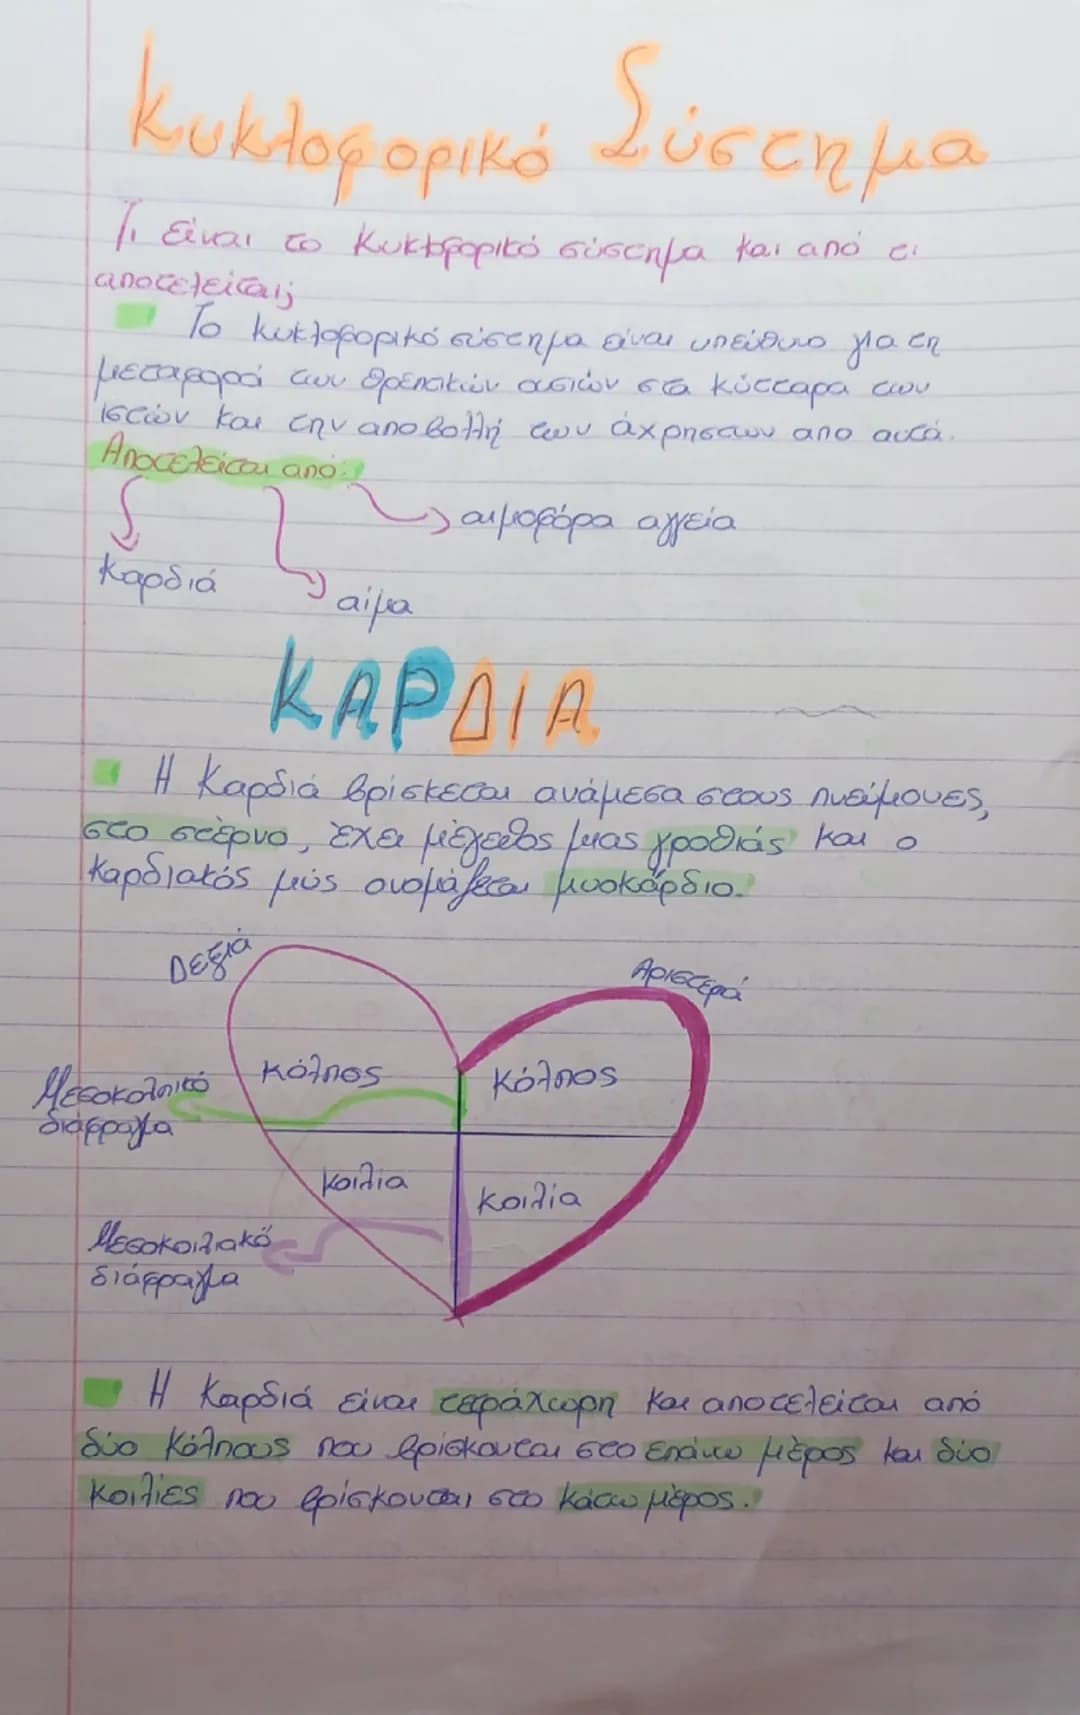 Κυκλοφορικό Σύστημα
Τι είναι το κυκλοφορικό σύστημα και από τι
αποτελείται;
Το κυκλοφορικό σύστημα είναι υπεύθυνο για τη
μεταφορά των θρεπτικών ουσιών στα κύτταρα των
ιστών και την αποβολή των άχρηστων απο αυτά.
Αποτελείται από:
αιμοφόρα αγγεία
Καρδιά
αίμα
ΚΑΡΔΙΑ
Η Καρδιά βρίσκεται ανάμεσα στους πνεύμονες,
στο στέρνο, έχει μέγεθος μιας γροθιάς και ο
καρδιακός μύς ονομάζεται μυοκάρδιο.
Δεξιά
Αριστερά
Κόλπος
Κόλπος
Μεσοκολπικό
διάφραγμα
κοιλία
κοιλία
Μεσοκοιλιακό
διάφραγμα
Η Καρδιά είναι τετράχωρη και αποτελείται από
δύο Κόλπους που βρίσκονται στο επάνω μέρος και δύο
Κοιλίες που βρίσκονται στο κάτω μέρος.